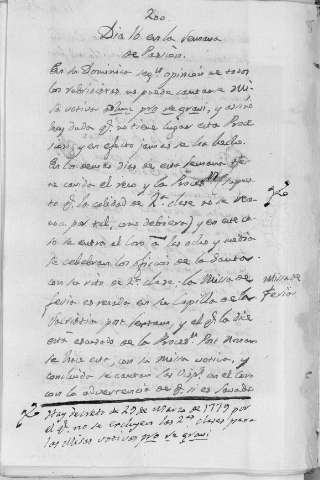 200
Dia 10 en la semana
de Pasion.
En la Dominica seg.n opinion de todos
los rubricistas no puede cantarse Mi-
sa votiva solum pro re gravi, y asi no
hay duda q.e no tiene lugar esta Proce
sion, y en efecto jamas se ha hecho.
En los demas dias de esta semana
se canda el rezo y la Procesion
to q.e la calidad de 2.a clase no se
por tal, ano de biero) y en este ca-
so se entra el Coro a las ocho y media
se celebran los oficios de la
con su rito de 2.a clase: la Misa de
feria es rezada en la Capilla de la
por semana, y el q.e la dice
esta esento de la Proces.n
se hace esta, con su misa votiva, y
concluida se cantan las Visp.s en el Coro
con la advertencia de q.e si es Sabado
Misa de
Feria
Hay decreto de 29 de Marzo de 1779 por
el q.e no se excluyen las 2.as clases para
las Misas votivas pro re gravi